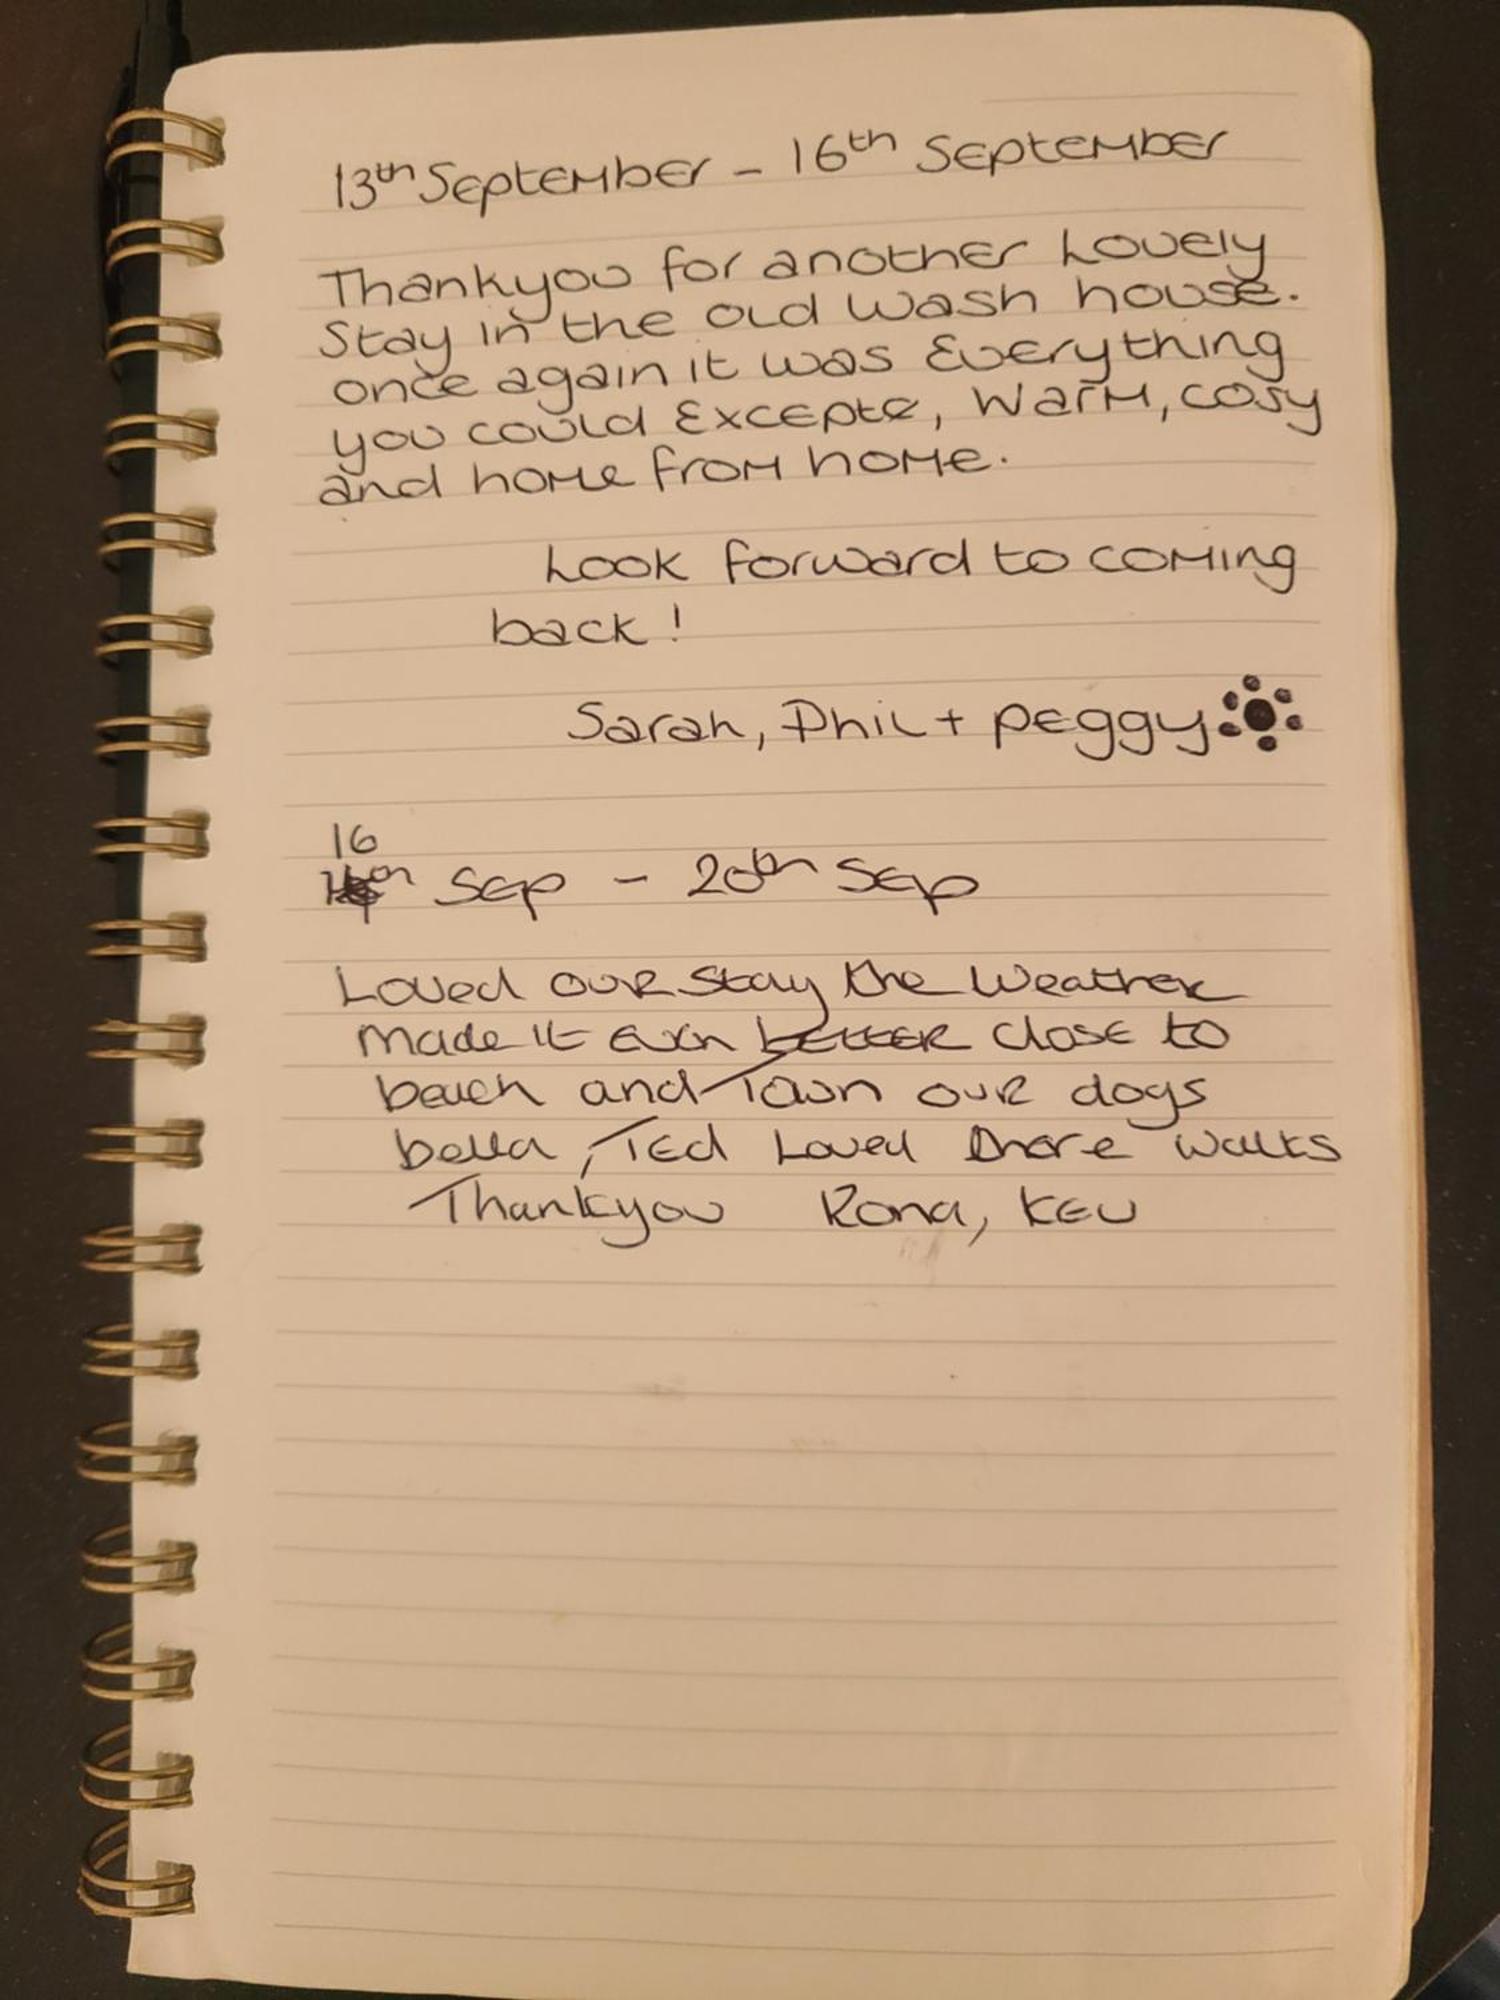 13th September - 16th September
Thankyou for another Lovely
Stay in the old wash house.
once again it was Everything
you could Excepte, Warm, cosy
and home from home.
Look forward to coming
back!
Sarah, Phil + Peggy
16
th Sep - 20th Sep
Loved our stay the Weather
made it even better close to
beach and Town our dogs
bella, Ted Loved there walks
Thankyou Rona, Kev